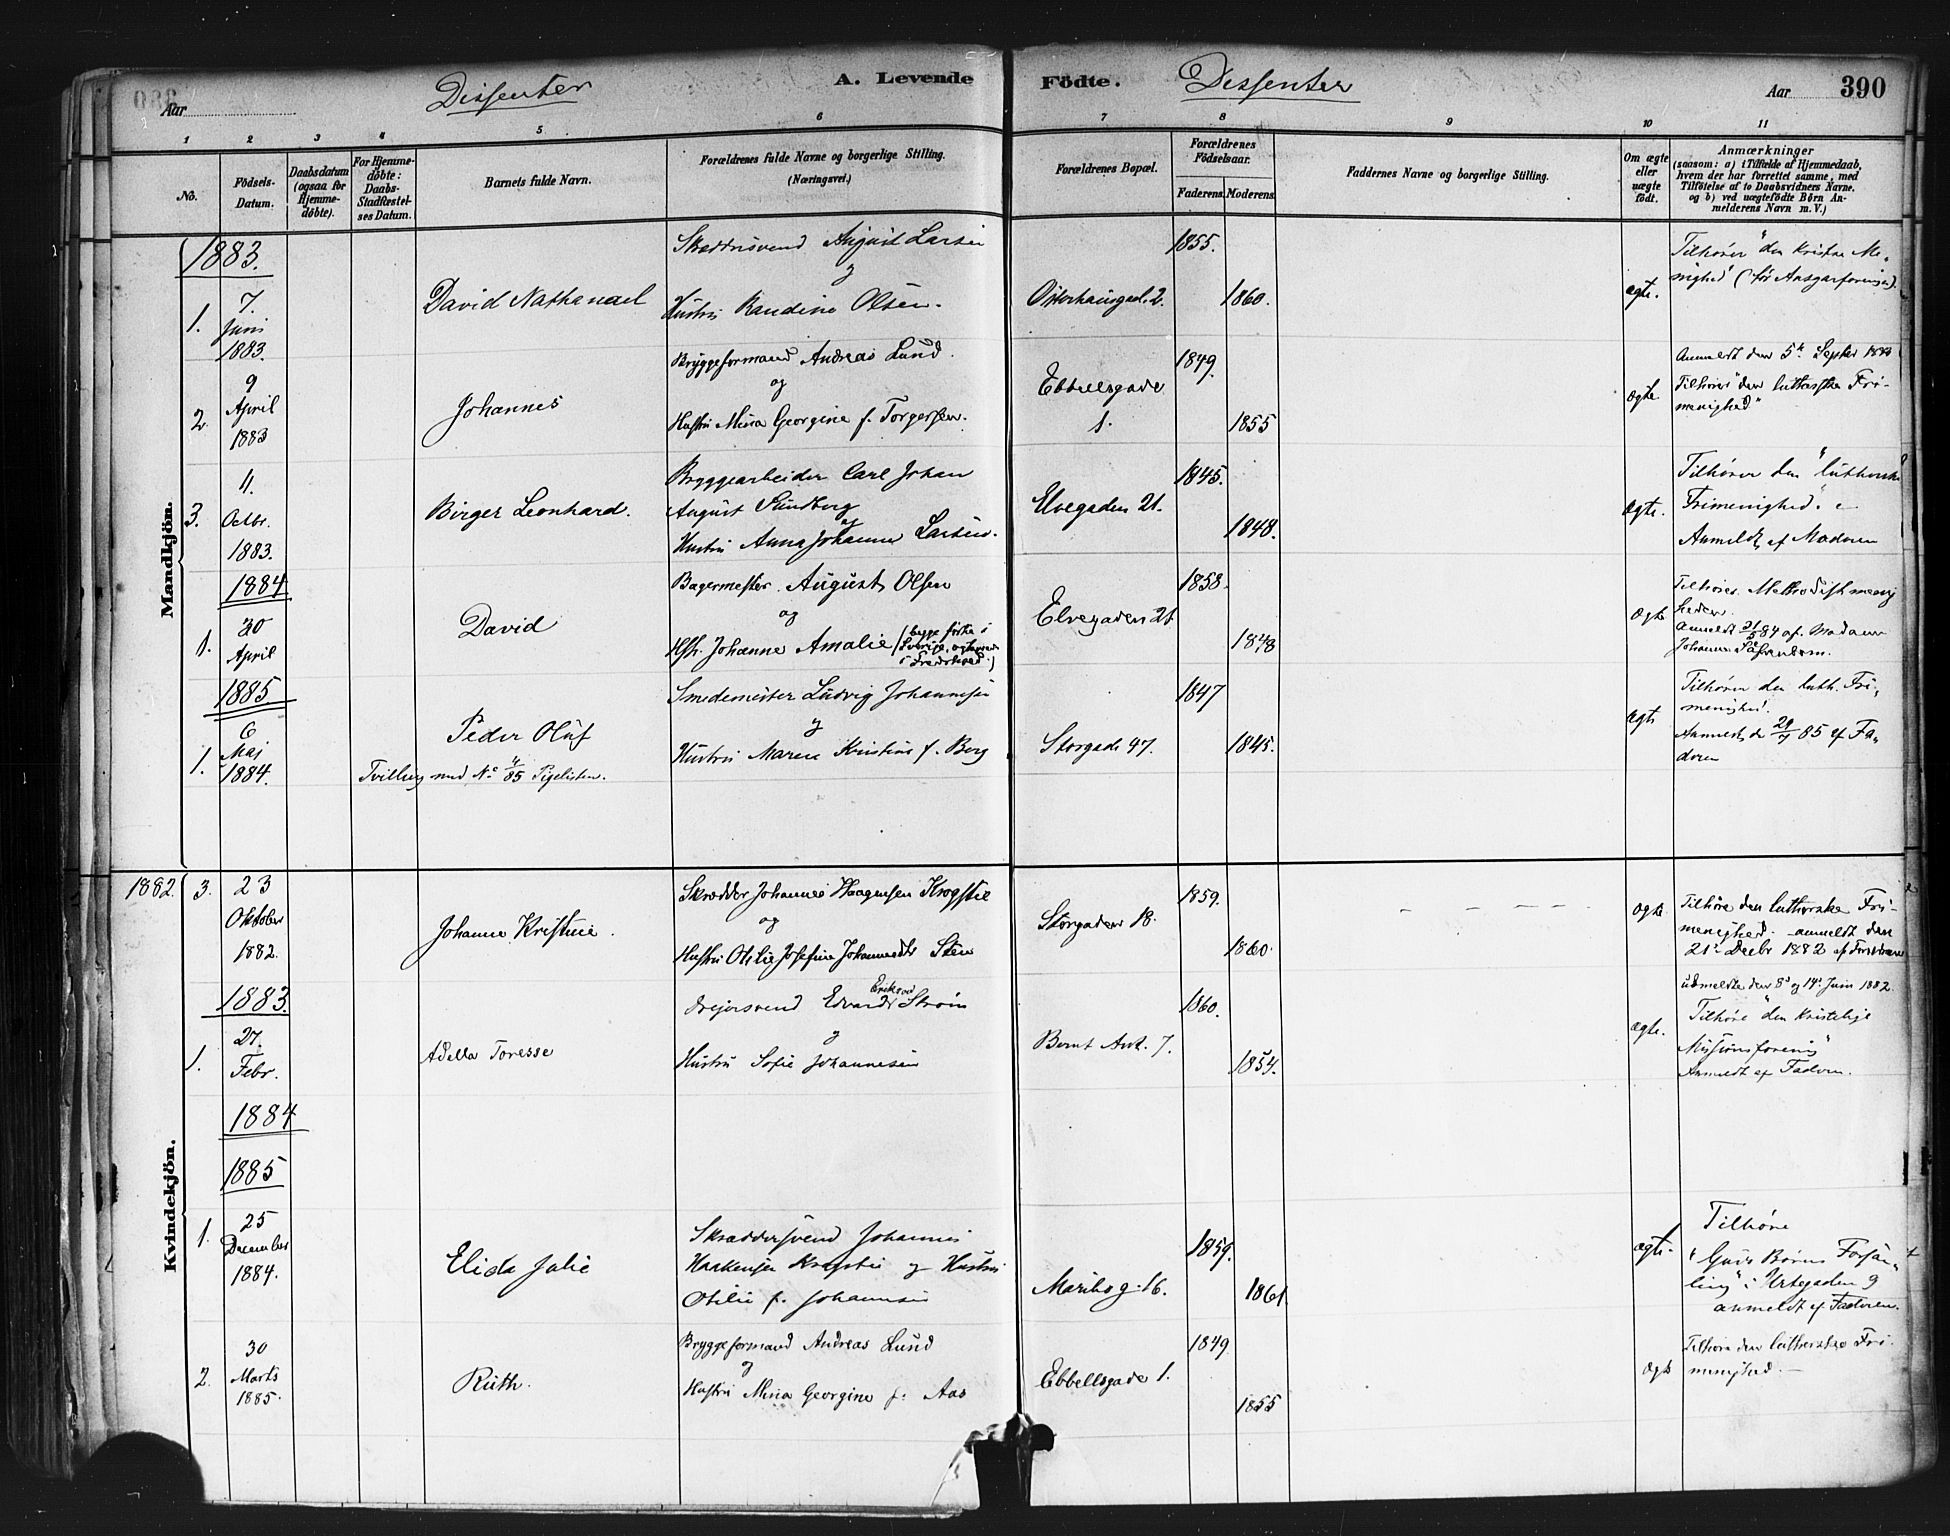 Aar
Dissenter
A. Levende
Födte.
Dissenter
Aar
390
1 2 3 4 5 6 7 8 9 10 11
No.
Födsels-
Datum.
Daabsdatum
(ogsaa for
Hjemme-
döbte).
For Hjemme-
döbte:
Daabs-
Stadfæstel-
ses Datum.
Barnets fulde Navn.
Forældrenes fulde Navne og borgerlige Stilling.
(Næringsvei.)
Forældrenes Bopæl.
Forældrenes
Födselsaar.
Faderens. Moderens.
Faddernes Navne og borgerlige Stilling.
Om ægte
eller
uægte
födt.
Anmærkninger
(saasom: a) i Tilfælde af Hjemmedaab,
hvem der har forrettet samme, med
Tilföielse af to Daabsvidners Navne.
og b) ved uægtefödte Börn An-
melderens Navn m. V.)
Mandkjön.
1883.
1.
7.
Juni
1883.
David Nathanael
Skræddersvend August Larsen
og
Hustru Randine Olsen.
Osterhausgad. 2.
1855.
1860.
ægte.
Tilhører "den Kristne Me-
nighed" (før Ansgarforeningen).
2
9
April
1883
Johannes
Bryggeformand Andreas Lund.
og
Hustru Mina Georgine f. Torgersen.
Ebbellsgade
1.
1849.
1855
ægte
Anmeldt den 5te Septbr
Tilhører "den lutherske Fri-
menighed"
3.
11.
Octbr.
1883.
Birger Leonhard.
Bryggearbeider Carl Johan
August Sundberg
og
Hustru Anna Johanne Larsen.
Elvegaden 21.
1845.
1848.
ægte.
Tilhører den "lutherske
Frimenighed."
Anmeldt af Moderen
1884
1.
20
April
David
Bagermester August Olsen
og
Hst. Johanne Amalie
Elvegaden 21
1858.
1848
ægte
Tilhører Methodistmenig
heden.
Anmeldt 21/5 84 af Madam
Johanne
1885
1.
6
Maj
1884.
Peder Oluf
Tvilling med No 4/85 Pigelisten.
Smedemester Ludvig Johannesen
og
Hustru Maren Kristine f. Berg
Storgade 47.
1847
1845.
ægte
Tilhører den luth. Fri-
menighed.
Anmeldt d. 29/7 85 af Fa-
deren
Kvindekjön.
1882.
3.
23
Oktober
1882.
Johanne Kristine.
Skrædder Johannes Haagensen Krogstie
og
Hustru Otilie Josefine Johannesdtr Steen
Storgaden 18.
1859.
1860.
ægte
Tilhøre den lutherske Fri-
menighed. anmeldt den
21de Decbr 1882 af Forældrene
udmeldte den 8de og 14de Juni 1882.
1883.
1.
27.
Febr.
Adella Toresse
Drejersvend Edvard Erikson Strøm
og
Hustru Sofie Johannesen
Bernt Ank. 7.
1860.
1854.
ægte.
Tilhøre "den kristelige
Missionsforening"
Anmeldt af Faderen.
1884
1885
1.
25
December
1884.
Elida Julie
Skræddersvend Johannes
Haakensen Krogstie og Hustru
Otilie f. Johannesen
Maribog. 16.
1859.
1861.
ægte.
Tilhøre
"Guds Børns Forsam-
ling" i Urtegaden 9
anmeldt af Faderen.
2.
30
Marts
1885.
Ruth.
Bryggeformand Andreas Lund
og
Hustru Mina Georgine f. Aas
Ebbellsgade 1.
1849
1855
ægte
Tilhøre den lutherske Fri-
menighed.